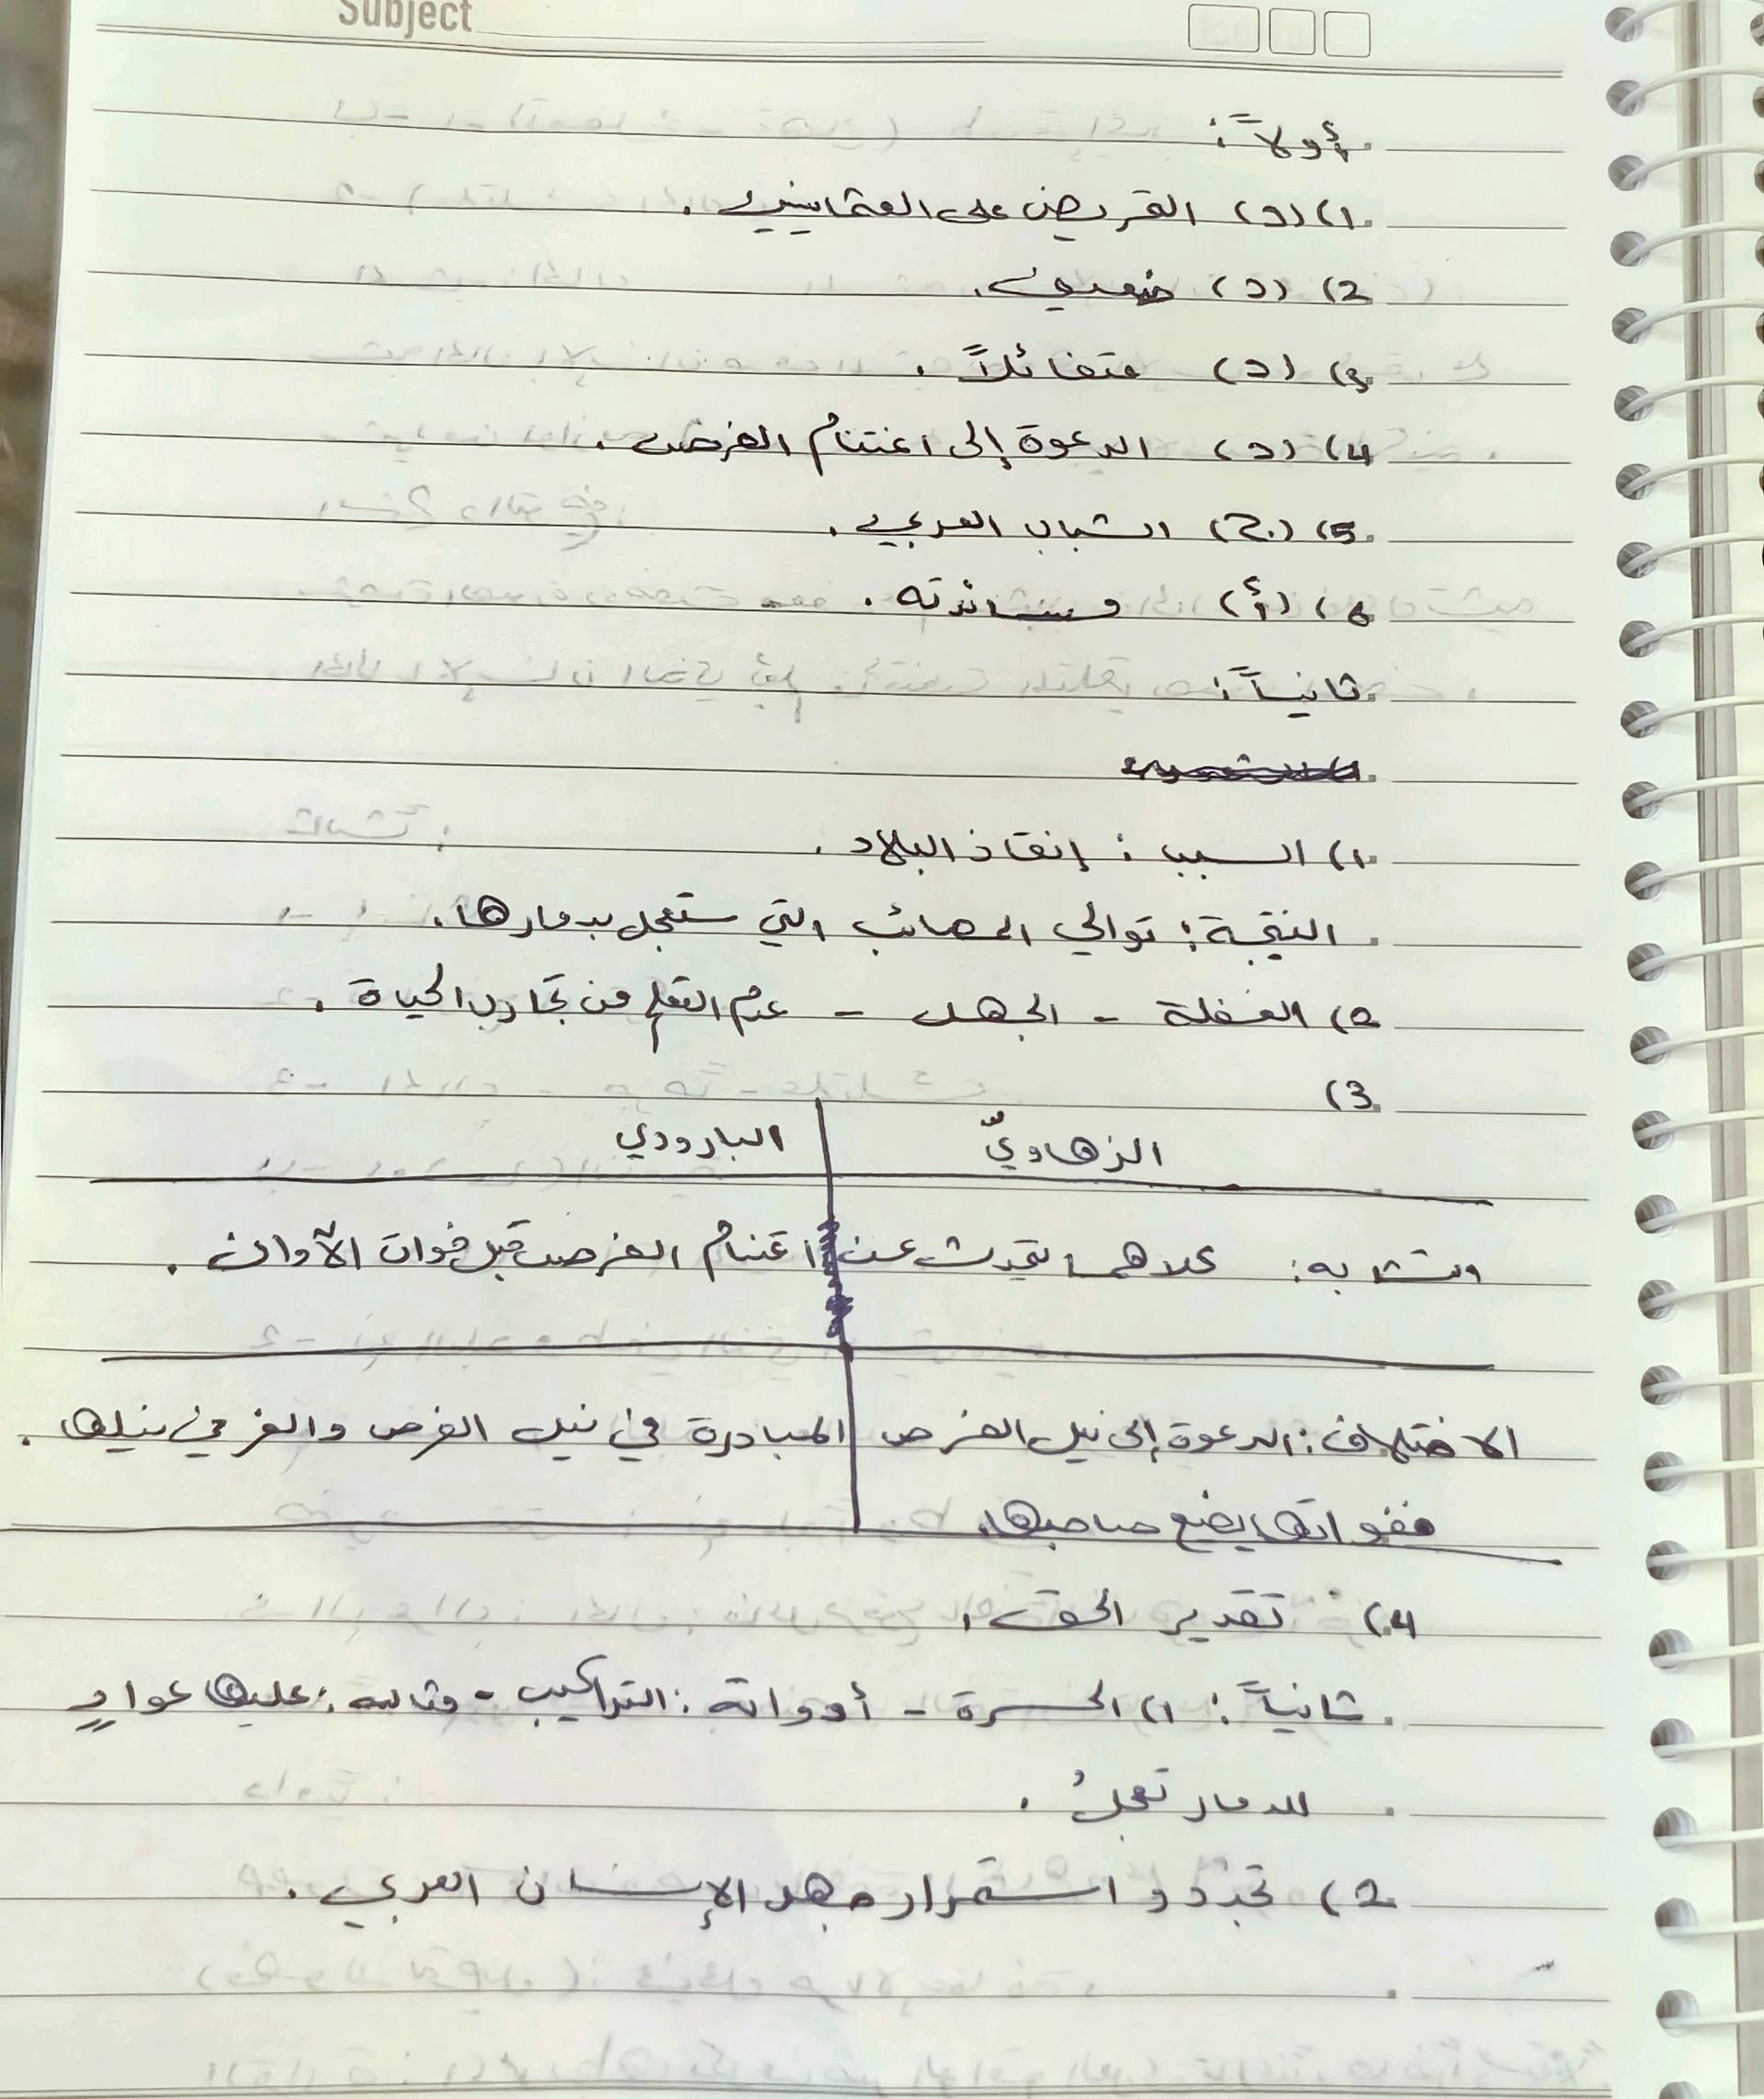 Subject
أولاً:
1) (د) التحريض على العثمانيين.
2) (د) ضعيف.
3) (د) متفائلاً.
4) (د) الدعوة إلى اغتنام الفرص.
5) (ج) الشباب العربي.
6) (أ) مساندته.
ثانياً:
1) السبب: إنقاذ البلاد.
النتيجة: توالي المصائب التي ستعجل بدمارها.
2) الغفلة - الجهل - عدم التعلم من تجارب الحياة.
3)
الزهاويّ البارودي
التشابه: كلاهما تحدث عن اغتنام الفرص قبل فوات الأوان.
الاختلاف: الدعوة إلى نيل الفرص المبادرة في نيل الفرص والعز في نيلها.
ففواتها يضع صاحبها.
4) تقدير الحق.
ثانياً: 1) الحسرة - أدواته: التراكيب - مثاله: عليها عوادٍ
للدمار تعجلُ.
2) تجدد واستمرار جهل الإنسان العربي.